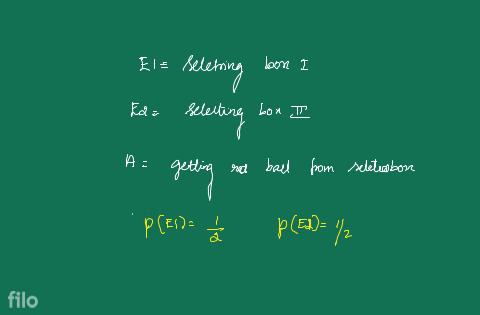 E1 = Selecting box I
E2 = Selecting box II
A = getting red ball from selected box
P(E1) = 1/2 P(E2) = 1/2
filo